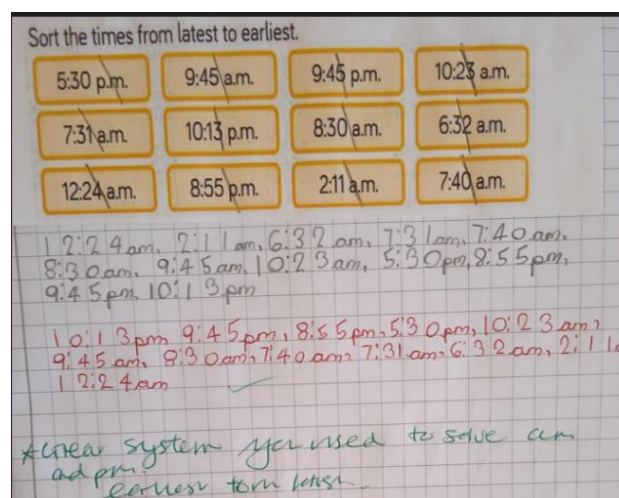 Sort the times from latest to earliest.
5:30 p.m. 9:45 a.m. 9:45 p.m. 10:23 a.m.
7:31 a.m. 10:13 p.m. 8:30 a.m. 6:32 a.m.
12:24 a.m. 8:55 p.m. 2:11 a.m. 7:40 a.m.
12:24am, 2:11am, 6:32am, 7:31am, 7:40am,
8:30am, 9:45am, 10:23am, 5:30pm, 8:55pm,
9:45pm, 10:13pm
10:13pm, 9:45pm, 8:55pm, 5:30pm, 10:23am,
9:45am, 8:30am, 7:40am, 7:31am, 6:32am, 2:11a
12:24am
* system you used to solve am
and pm.
earliest to